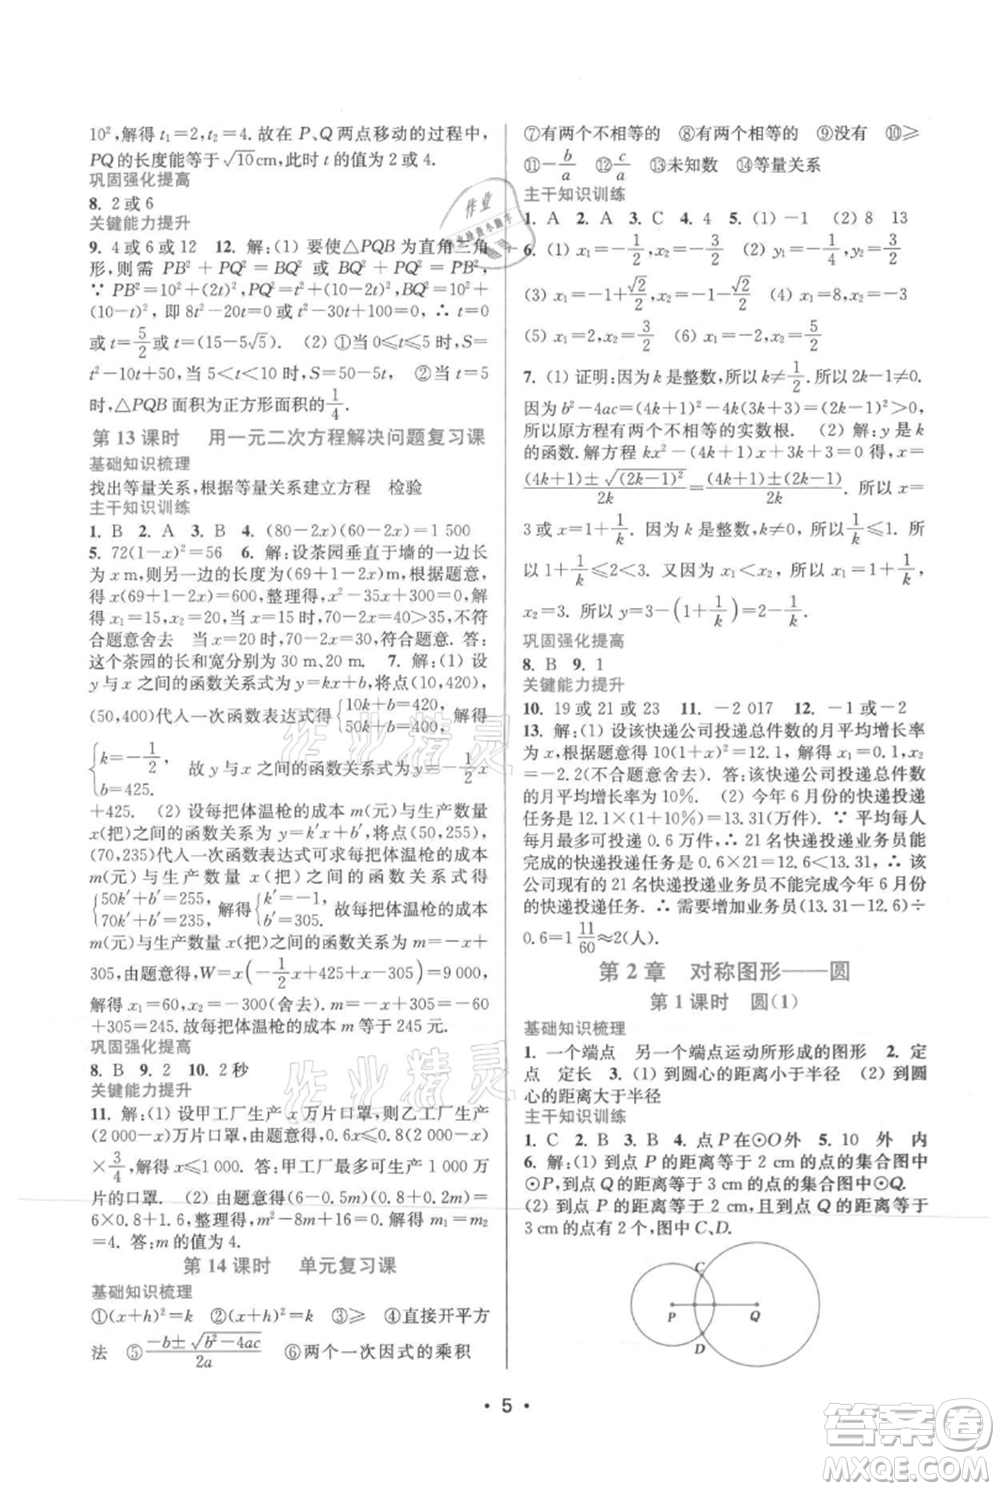 10²,解得 t₁=2,t₂=4.故在 P、Q 两点移动的过程中,
PQ 的长度能等于√10cm,此时 t 的值为 2 或 4.
巩固强化提高
8. 2 或 6
关键能力提升
9. 4 或 6 或 12 12. 解:(1) 要使△PQB 为直角三角
形,则需 PB²+PQ²=BQ² 或 PQ²+BQ²=PB².
∵ PB²=10²+(2t)²,PQ²=(10-t)²+t²,BQ²=10²+
(10-t)²,即 8t²-20t=0 或 2t²-30t+100=0,∴ t=0
或 t=5/2 或 t=(15-5√5). (2) ①当 0≤t≤5 时,S=
t²-10t+50,当 5<t<10 时,S=50-5t, ②当 t=5
时,△PQB 面积为正方形面积的1/4.
第 13 课时 用一元二次方程解决问题复习课
基础知识梳理
找出等量关系,根据等量关系建立方程 检验
主干知识训练
1. B 2. A 3. B 4. (80-2x)(60-2x)=1 500
5. 72(1-x)²=56 6. 解:设茶园垂直于墙的一边长
为 x m,则另一边的长度为(69+1-2x)m.根据题意,
得 x(69+1-2x)=600,整理,得 x²-35x+300=0.
解得 x₁=15,x₂=20,当 x=15时,70-2x=40>35,不符
合题意舍去 当 x=20时,70-2x=30,符合题意.答:
这个茶园的长和宽分别为 30 m、20 m. 7. 解:(1) 设
y 与 x 之间的函数关系式为 y=kx+b,把(10,420),
(50,400)代入一次函数表达式得{10k+b=420, 50k+b=400, 解得
{k=-1/2, b=425. 故 y 与 x 之间的函数关系式为 y=-1/2x
+425. (2) 设每把体温枪的成本 m(元)与生产数量
x(把)之间的函数关系为 y=k′x+b′,将点(50,255),
(70,235)代入一次函数表达式可求每把体温枪的成本
{50k′+b′=255, 70k′+b′=235, 解得{k′=-1, b′=305. 故每把体温枪的成本
m(元)与生产数量 x(把)之间的函数关系式为 m=-x+
305.由题意得,W=x(-1/2x+425+x-305)=9 000,
解得 x₁=60,x₂=-300(舍去).故每把体温枪的成本 m=-60
+305=245.故每把体温枪的成本 m 等于 245 元.
巩固强化提高
8. B 9. 2 10. 2 秒
关键能力提升
11. 解:(1) 设甲工厂生产 x 万片口罩,则乙工厂生产
(2 000-x)万片口罩,由题意得:0.6x≤0.8(2 000-x)
×3/4,解得:x≤1 000. 答:甲工厂最多可生产 1 000 万
片的口罩. (2) 由题意得(6-0.5m)(0.8+0.2m)=
6×0.8+1.6,整理得,m²-8m+16=0.解得:m₁=m₂=
4. 答:m 的值为 4.
第 14 课时 单元复习课
基础知识梳理
①(x+h)²=k ②(x+h)²=k ③≥ ④直接开平方
法 ⑤(-b±√(b²-4ac))/2a ⑥两个一次因式的乘积
⑦有两个不相等的 ⑧有两个相等的 ⑨没有 ⑩≥
⑪-b/a ⑫c/a ⑬未知数 ⑭等量关系
主干知识训练
1. A 2. A 3. C 4. 4 5. (1) -1 (2) 8 13
6. (1) x₁=-1/2,x₂=3/2 (2) y₁=-1/4,y₂=2
(3) x₁=-1+√2/2,x₂=-1-√2/2 (4) x₁=8,x₂=-3
(5) x₁=2,x₂=3/2 (6) x₁=-2,x₂=1/2
7. (1) 证明:因为 k 是整数,所以 k≠1/2.所以 2k-1≠0.
因为 b²-4ac=(4k+1)²-4k(3k+3)=(2k-1)²>0,
所以原方程有两个不相等的实数根. (2) 解:y 是 k
的函数.解方程 kx²-(4k+1)x+3k+3=0,得 x=
((4k+1)±√(2k-1)²)/2k=((4k+1)±(2k-1))/2k.所以 x=
3 或 x=1+1/k.因为 k 是整数,所以1/k≤1.所
以 1+1/k≤2<3.又因为 x₁<x₂,所以 x₁=1+1/k,
x₂=3.所以 y=3-(1+1/k)=2-1/k.
巩固强化提高
8. B 9. 1
关键能力提升
10. 19 或 21 或 23 11. -2 017 12. -1 或-2
13. 解:(1) 设该快递公司投递总件数的月平均增长率
为 x,根据题意得 10(1+x)²=12.1,解得 x₁=0.1,x₂
=-2.2(不符合题意).答:该快递公司投递总件数
的月平均增长率为 10%. (2) 今年 6 月份的快递投递
任务是 12.1×(1+10%)=13.31(万件).∵ 平均每人
每月最多可投递 0.6 万件,∴ 21 名快递投递业务员能
完成的快递投递任务 0.6×21=12.6<13.31,∴ 该
公司现有的 21 名快递投递业务员不能完成今年 6 月份的
快递投递任务.∴ 需要增加业务员(13.31-12.6)÷
0.6=1 11/60≈2(人).
第 2 章 对称图形——圆
第 1 课时 圆(1)
基础知识梳理
1. 一个端点 另一个端点运动所形成的图形 2. 定
点 定长 3. (1) 到圆心的距离小于半径 (2) 到圆
心的距离大于半径
主干知识训练
1. C 2. B 3. B 4. 点 P 在⊙O 外 5. 10 外 内
6. 解:(1) 到点 P 的距离等于 2 cm的点的集合图中
⊙P,到点 Q 的距离等于 3 cm 的点的集合图中⊙Q.
(2) 到点 P 的距离等于 2 cm,且到点 Q 的距离等于
3 cm 的点有 2 个,图中 C、D.
C
P Q
D
• 5 •
作业精灵
作业精灵
答案卷
MXQE.COM